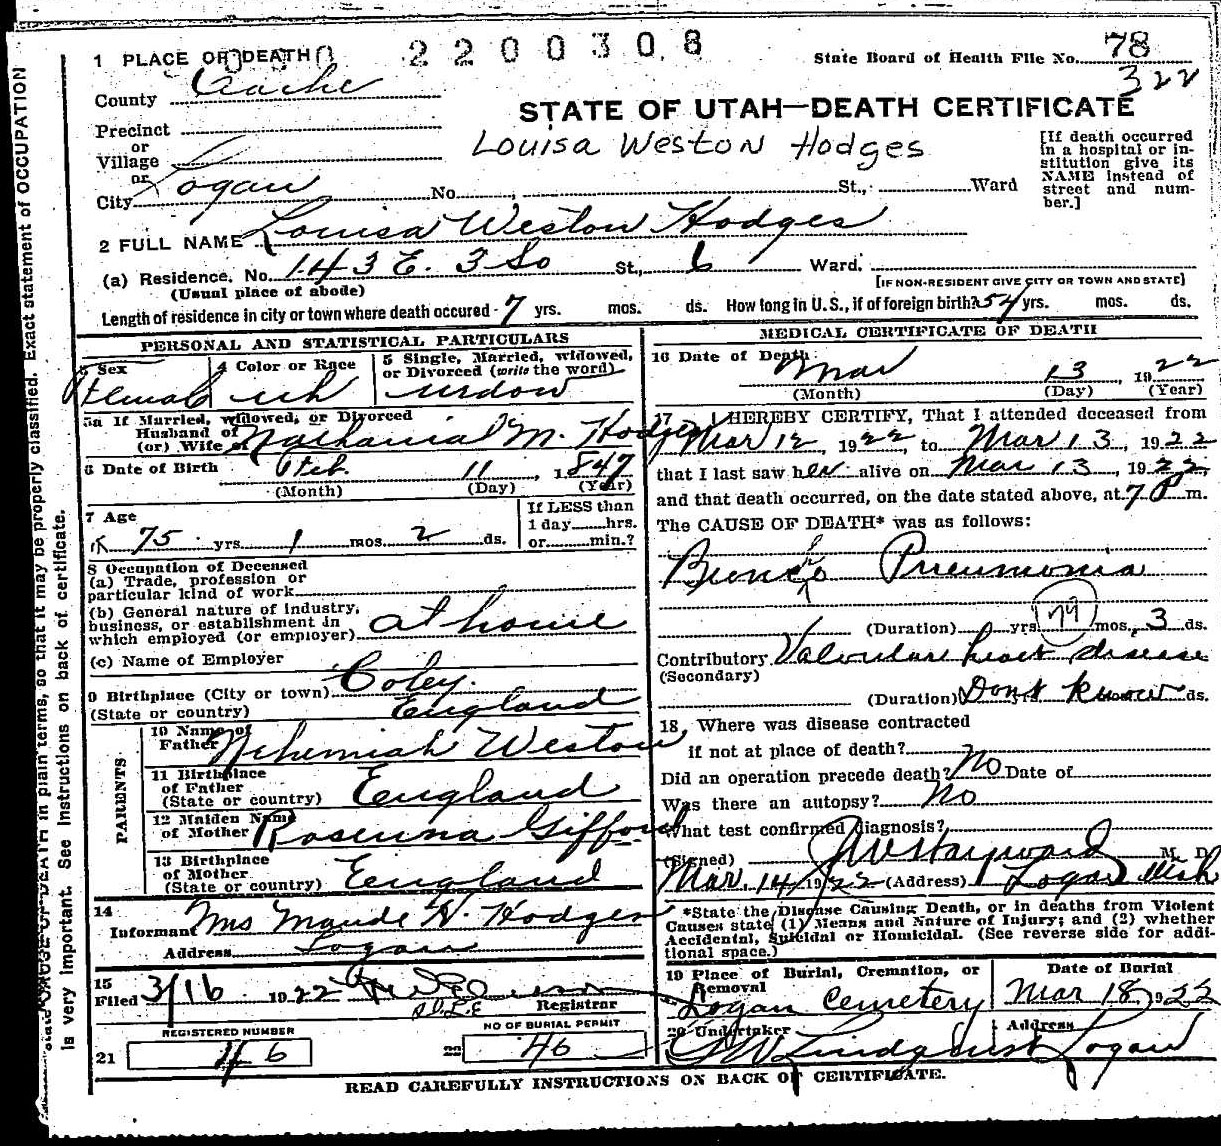 2200308
1 PLACE OF DEATH
State Board of Health File No. 78
322
County Cache
STATE OF UTAH—DEATH CERTIFICATE
Precinct
or
Village
or
City Logan No. St., Ward
Louisa Weston Hodges
[If death occurred
in a hospital or in-
stitution give its
NAME instead of
street and num-
ber.]
2 FULL NAME Louisa Weston Hodges
(a) Residence. No. 143 E. 3 So St., 6 Ward.
(Usual place of abode)
[IF NON-RESIDENT GIVE CITY OR TOWN AND STATE]
Length of residence in city or town where death occured 7 yrs. mos. ds. How long in U.S., if of foreign birth? 54 yrs. mos. ds.
PERSONAL AND STATISTICAL PARTICULARS
3 Sex
4 Color or Race
5 Single, Married, widowed,
or Divorced (write the word)
Female wh widow
5a If Married, widowed, or Divorced
Husband of
(or) Wife of Nathanial M. Hodges
6 Date of Birth Feb. 11, 1847
(Month) (Day) (Year)
7 Age
75 yrs 1 mos 2 ds.
If LESS than
1 day hrs.
or min.?
8 Occupation of Deceased
(a) Trade, profession or
particular kind of work
(b) General nature of industry,
business, or establishment in
which employed (or employer) at home
(c) Name of Employer
9 Birthplace (City or town) Coley.
(State or country) England
PARENTS
10 Name of
Father Nehemiah Weston
11 Birthplace
of Father
(State or country) England
12 Maiden Name
of Mother Rosenna Gifford
13 Birthplace
of Mother
(State or country) England
14
Informant Mrs Maude H. Hodges
Address Logan
15
Filed 3/16 1922
Registrar
REGISTERED NUMBER
21 46
NO OF BURIAL PERMIT
22 46
MEDICAL CERTIFICATE OF DEATH
16 Date of Death Mar 13 1922
(Month) (Day) (Year)
17 I HEREBY CERTIFY, That I attended deceased from
Mar 12, 1922, to Mar 13, 1922
that I last saw her alive on Mar 13, 1922
and that death occurred, on the date stated above, at 7 P m.
The CAUSE OF DEATH* was as follows:
Broncho Pneumonia
(Duration) yrs mos, 3 ds.
Contributory Valvular heart disease
(Secondary)
(Duration) Don't know ds.
18, Where was disease contracted
if not at place of death?
Did an operation precede death? No Date of
Was there an autopsy? No
What test confirmed diagnosis?
(Signed) J W Hayward M. D.
Mar 14 1922 (Address) Logan Utah
*State the Disease Causing Death, or in deaths from Violent
Causes state (1) Means and Nature of Injury; and (2) whether
Accidental, Suicidal or Homicidal. (See reverse side for addi-
tional space.)
19 Place of Burial, Cremation, or
Removal
Logan Cemetery
Date of Burial
Mar 18, 1922
20 Undertaker Address
Lindquist Logan
READ CAREFULLY INSTRUCTIONS ON BACK OF CERTIFICATE.
state CAUSE OF DEATH in plain terms, so that it may be properly classified. Exact statement of OCCUPATION
is very important. See instructions on back of certificate.